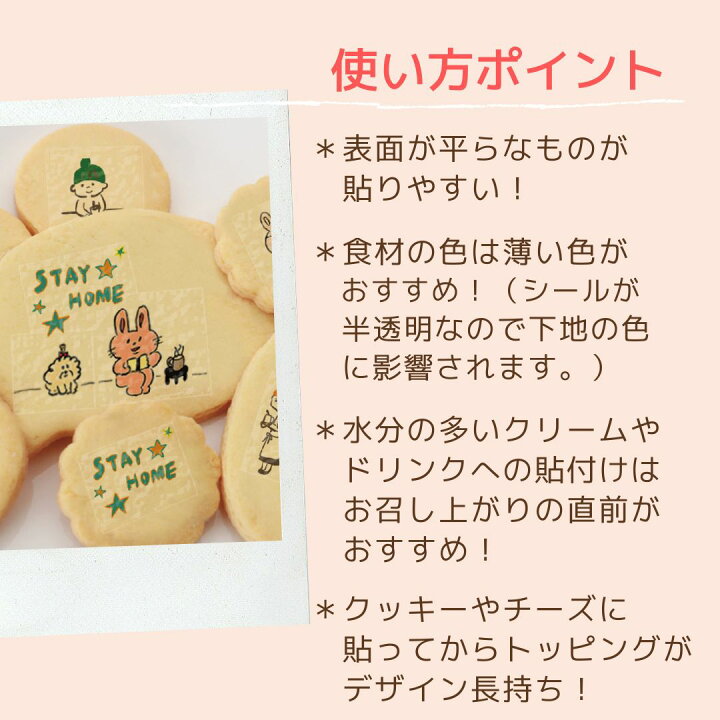 使い方ポイント
＊表面が平らなものが
貼りやすい！
＊食材の色は薄い色が
おすすめ！（シールが
半透明なので下地の色
に影響されます。）
＊水分の多いクリームや
ドリンクへの貼付けは
お召し上がりの直前が
おすすめ！
＊クッキーやチーズに
貼ってからトッピングが
デザイン長持ち！
STAY
HOME
STAY
HOME